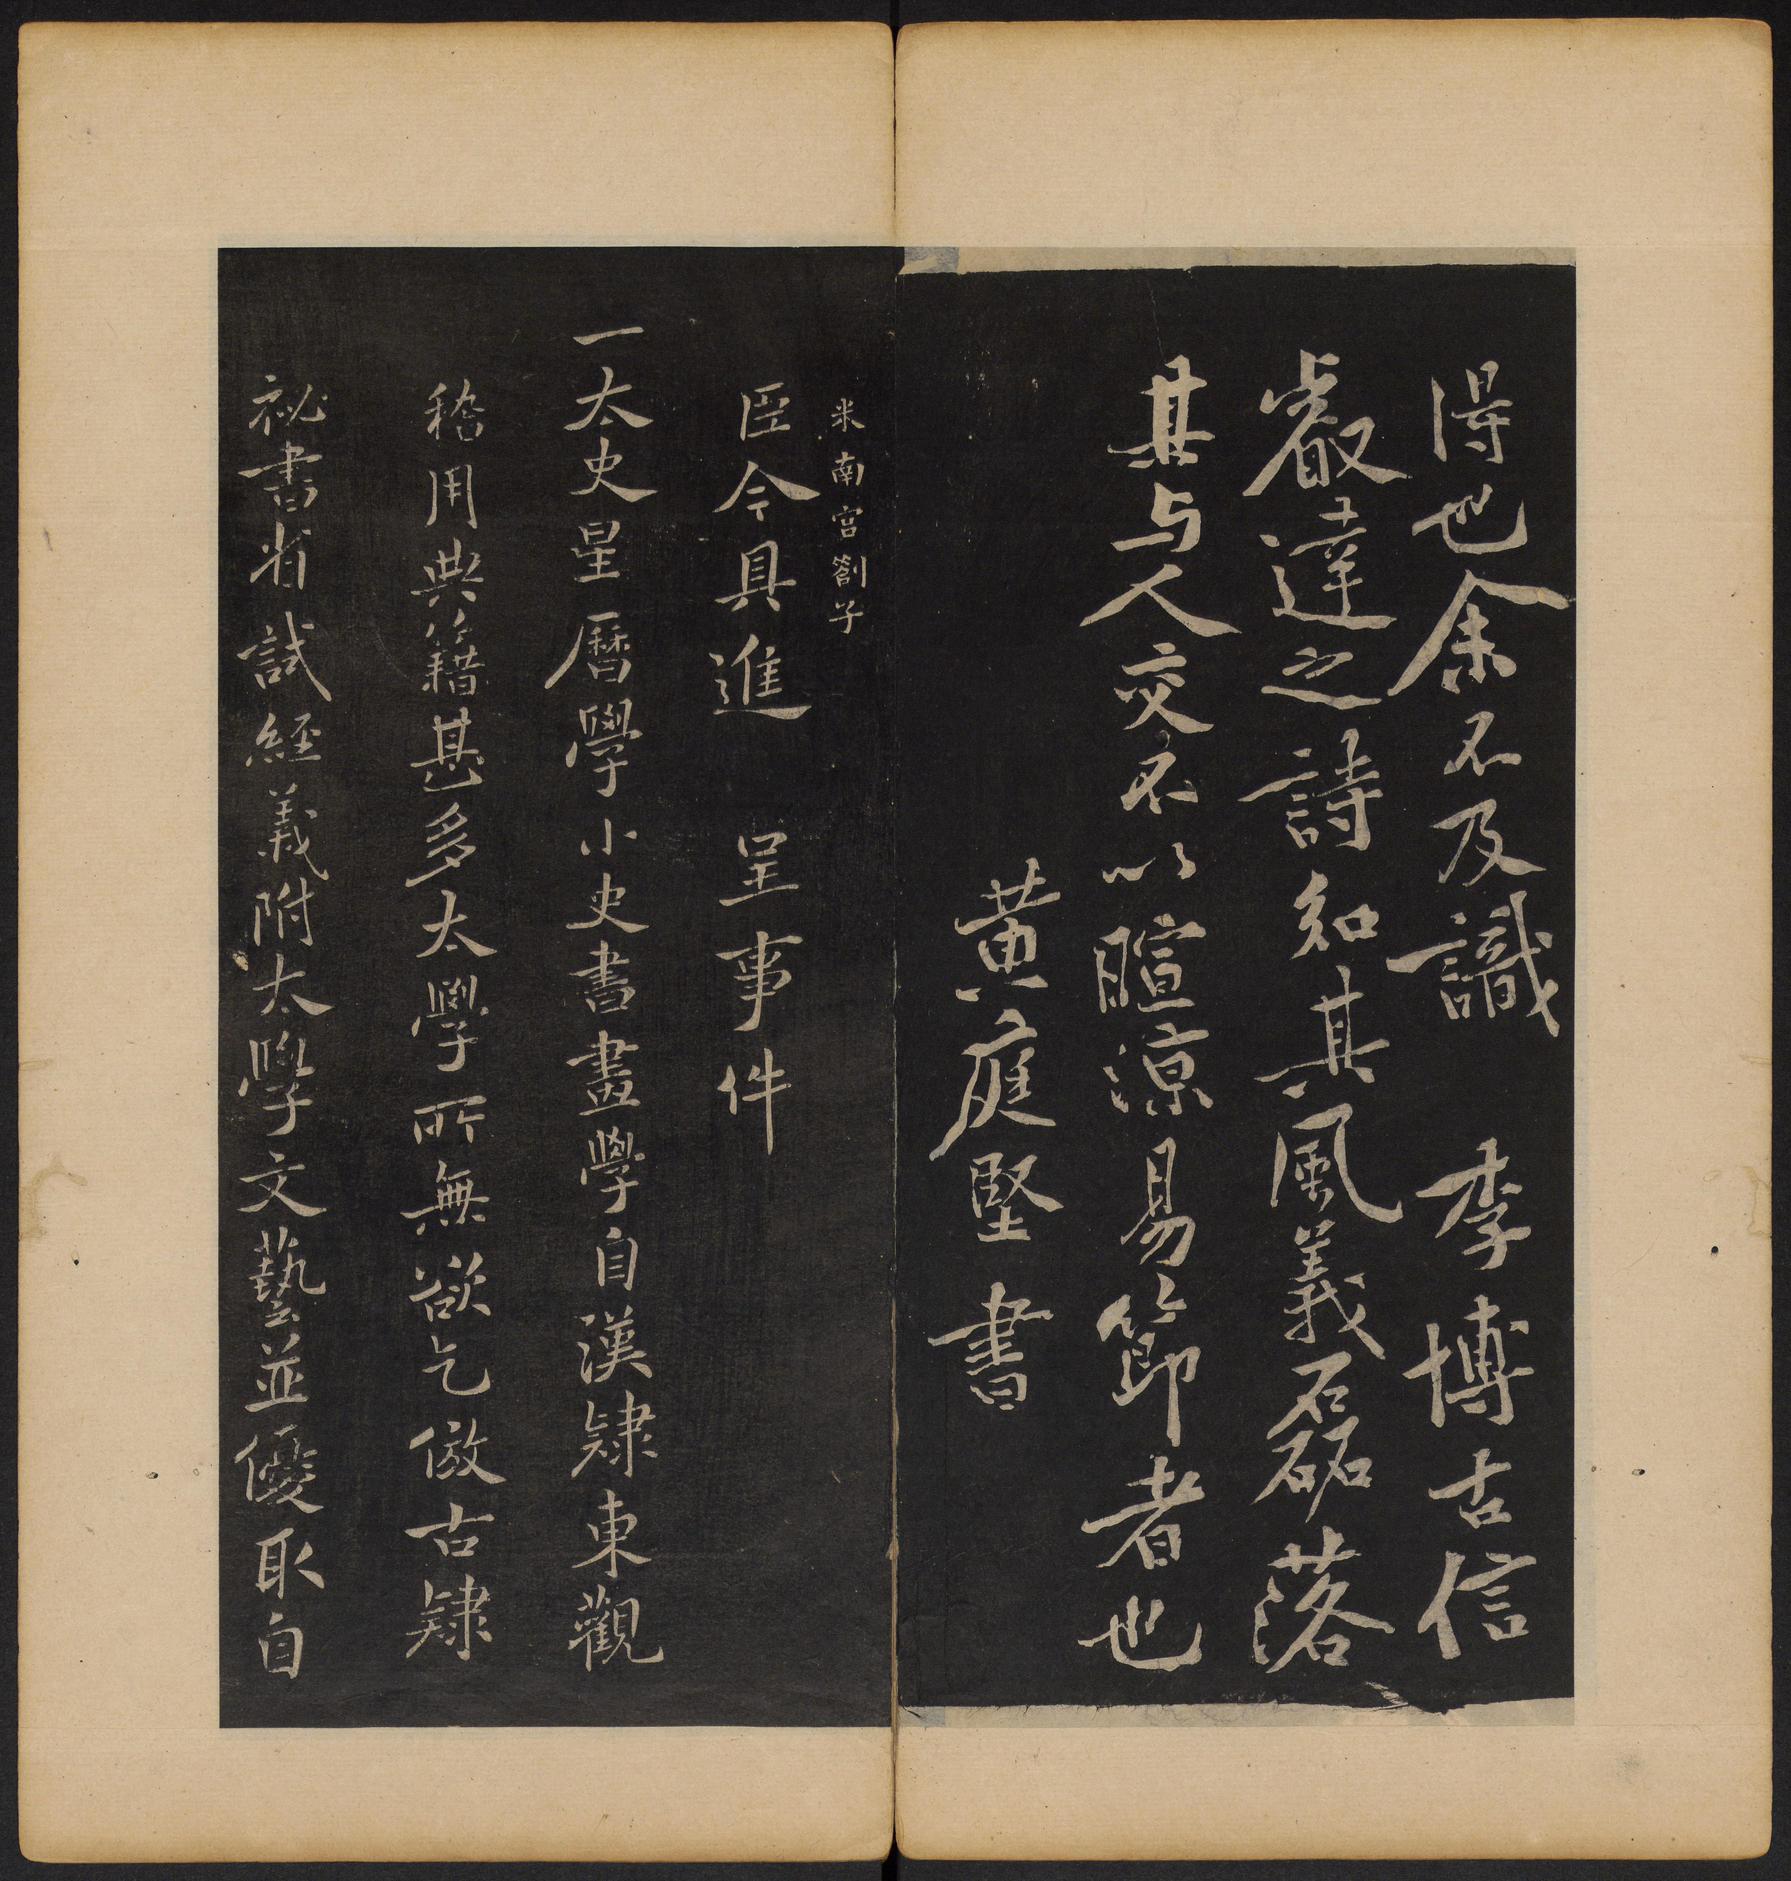 得也余不及識 李博古信
叡達之詩知其風義磊落
其与人交不以暄涼易節者也
黃庭堅書
米南宮劄子
臣今具進 呈事件
一太史星曆學小史書畫學自漢隸東觀
稽用典籍甚多太學所無欲乞倣古隸
祕書省試經義附太學文藝並優取自